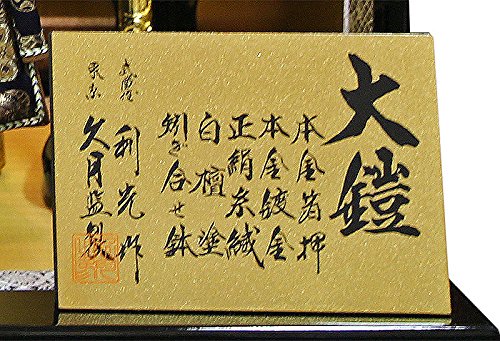 大鎧
本金箔押
本金鍍金
正絹糸縅
白檀塗
矧ぎ合せ鉢
利光作
東京
久月監製